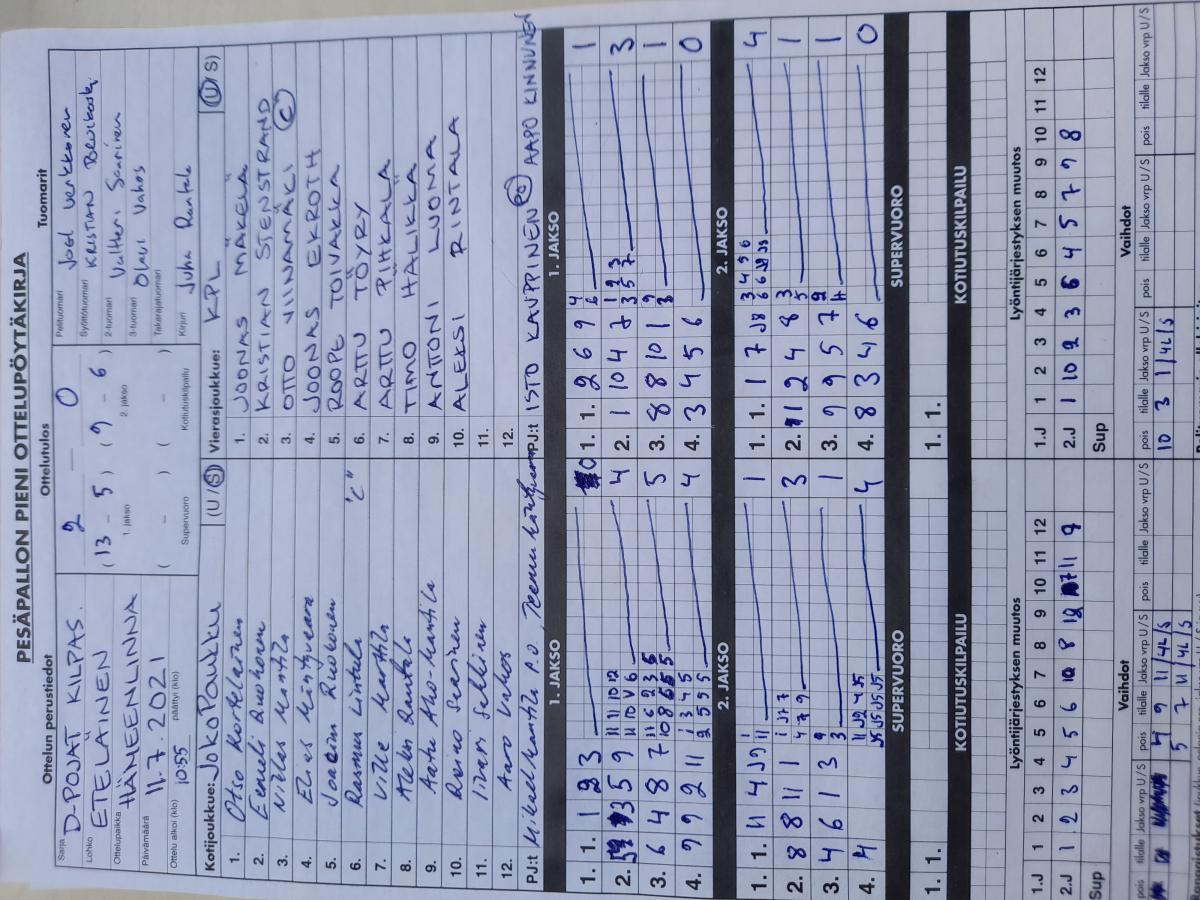 PESÄPALLON PIENI OTTELUPÖYTÄKIRJA
Ottelun perustiedot
Sarja D-POJAT KILPAS.
Lohko ETELÄINEN
Ottelupaikka HÄMEENLINNA
Päivämäärä 11.7.2021
Ottelu alkoi (klo) 10:55 päättyi (klo)
Ottelutulos
2 0
(13 - 5) (9 - 6)
1. jakso 2. jakso
( - ) ( - )
Supervuoro Kotiutuskilpailu
Tuomarit
Pelituomari Joel Verkkonen
Syöttötuomari KRISTIAN
2-tuomari Valtteri Saarinen
3-tuomari Olavi Vahos
Takarajatuomari
Kirjuri Juha Rantala
Kotijoukkue: JoKoPauku (U/S)
1. Otso Kortelainen
2. Eemeli Ruohonen
3. Niklas Mantila
4. Eeres Mäntyvaara
5. Joakim Ruokonen
6. Rasmus Lintula "C"
7. Ville Marttila
8. Aleksi Rantala
9. Aatu Aho-Mantila
10. Raino Saarinen
11. Iivari Sekkinen
12. Aaro Vahos
PJ:t Mikael Mantila P.J. Teemu
Vierasjoukkue: KPL (U/S)
1. JOONAS MÄKELÄ
2. KRISTIAN STENSTRAND
3. OTTO VIINAMÄKI C
4. JOONAS EKROTH
5. ROOPE TOIVAKKA
6. ARTTU TÖYRY
7. ARTTU PIHKALA
8. TIMO HALIKKA
9. ANTTONI LUOMA
10. ALEKSI RINTALA
11.
12.
PJ:t ISTO KAUPPINEN PJ AAPO KINNUNEN
1. JAKSO
1. 1. 1 2 3 0
2. 3 5 9 4
3. 6 4 8 7 5
4. 9 9 2 11 4
1. JAKSO
1. 1. 2 6 9 1
2. 1 10 4 7 3
3. 8 8 10 1 1
4. 3 4 5 6 0
2. JAKSO
1. 1. 11 4 J9 1
2. 8 8 11 1 3
3. 4 6 1 3 1
4. 4 4
2. JAKSO
1. 1. 1 7 J8 4
2. 11 2 4 8 1
3. 9 9 5 7 1
4. 8 3 4 6 0
SUPERVUORO
1. 1.
SUPERVUORO
1. 1.
KOTIUTUSKILPAILU
KOTIUTUSKILPAILU
Lyöntijärjestyksen muutos
1.J 1 2 3 4 5 6 7 8 9 10 11 12
2.J 1 2 3 4 5 6 10 8 12 7 11 9
Sup
Lyöntijärjestyksen muutos
1.J 1 2 3 4 5 6 7 8 9 10 11 12
2.J 1 10 2 3 6 4 5 7 9 8
Sup
Vaihdot
pois tilalle Jakso vrp U/S pois tilalle Jakso vrp U/S pois tilalle Jakso vrp U/S
4 9 II/4L/S
5 7 II 4L S
Vaihdot
pois tilalle Jakso vrp U/S pois tilalle Jakso vrp U/S pois tilalle Jakso vrp U/S
10 3 1/4L/S